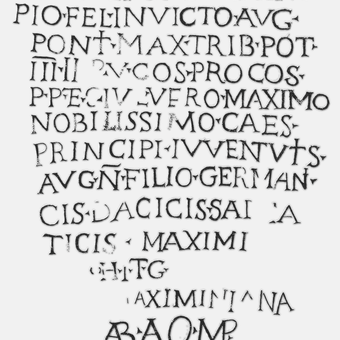 PIO·FEL·INVICTO·AVG·
PONT·MAX·TRIB·POT·
COS·PROCOS·
P·P·ET VERO·MAXIMO
NOBILISSIMO·CAES·
PRINCIPI·IVVENTVTS·
AVG·Ñ·FILIO·GERMAN·
CIS·DACICIS·SAR A
TICIS · MAXIMI
COH·I·FG
MAXIMINIANA